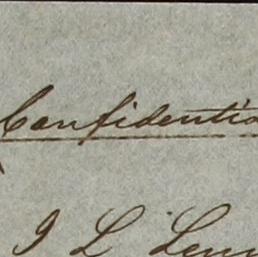 Confidentia
J L Lew